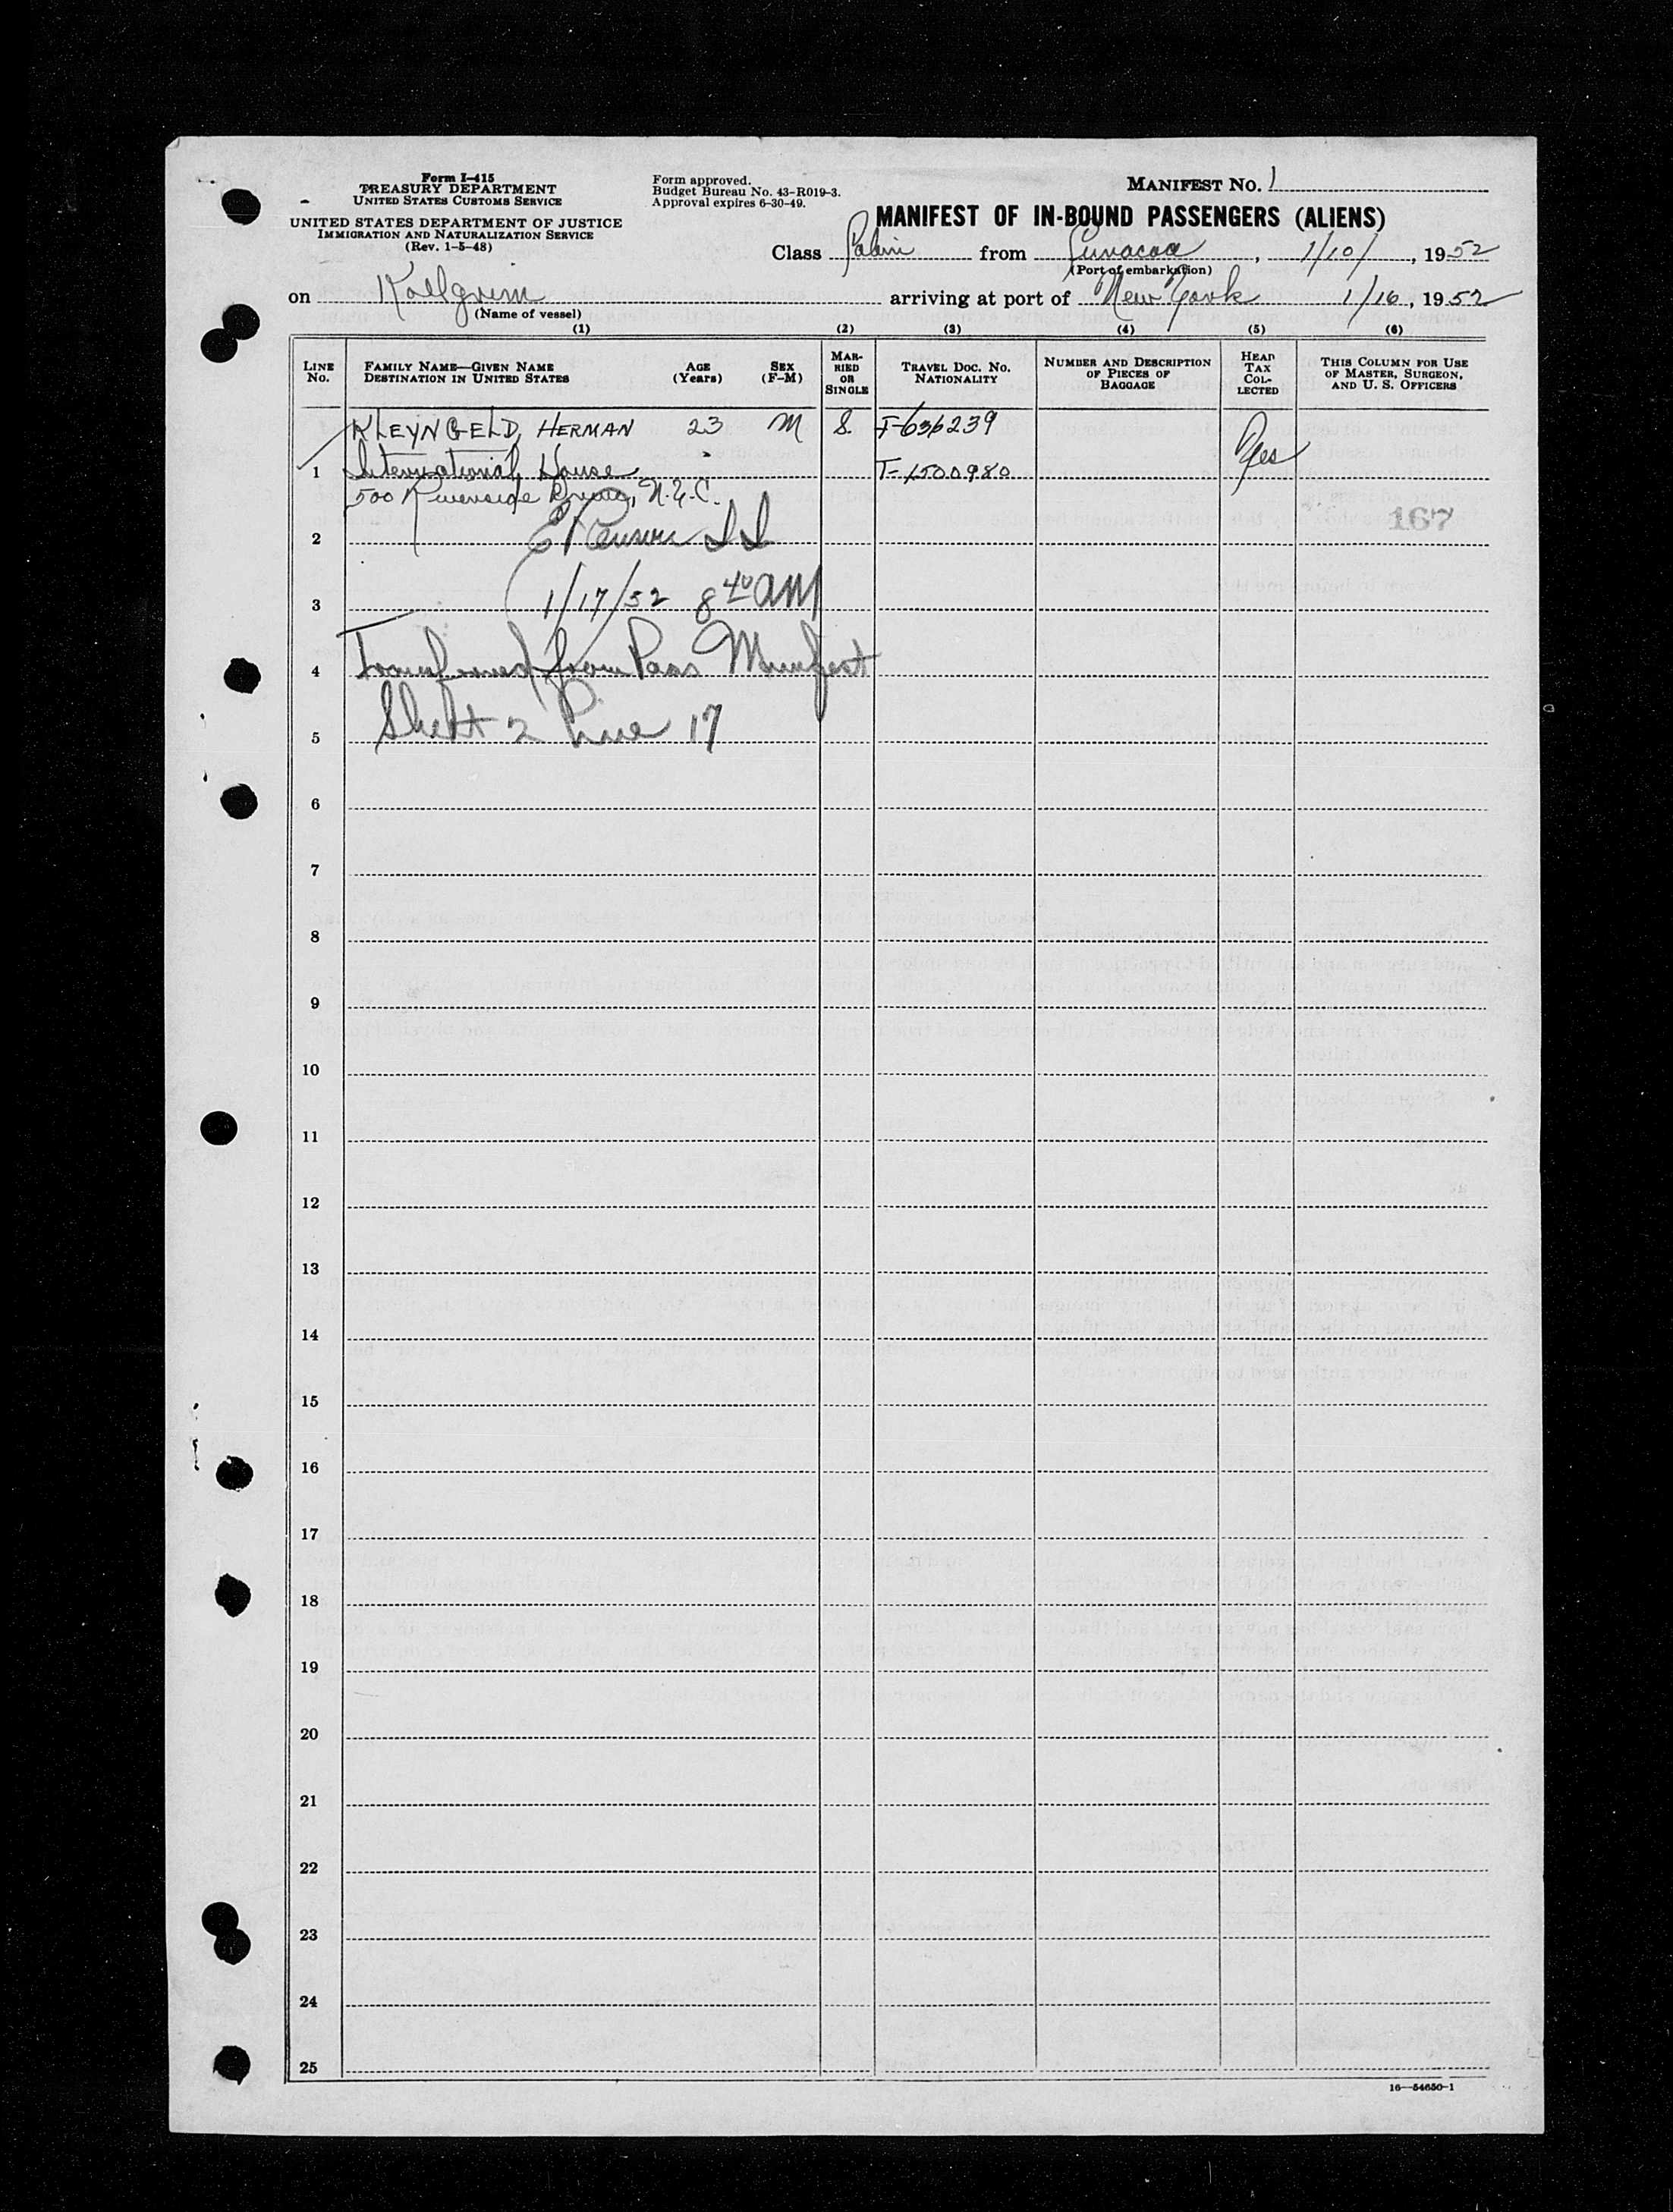 Form I-415
TREASURY DEPARTMENT
UNITED STATES CUSTOMS SERVICE
UNITED STATES DEPARTMENT OF JUSTICE
IMMIGRATION AND NATURALIZATION SERVICE
(Rev. 1-5-48)
Form approved.
Budget Bureau No. 43-R019-3.
Approval expires 6-30-49.
MANIFEST NO. 1
MANIFEST OF IN-BOUND PASSENGERS (ALIENS)
Class Cabin from Curacao, 1/10/, 1952
(Port of embarkation)
on Kollgrim arriving at port of New York 1/16, 1952
(Name of vessel)
(1) (2) (3) (4) (5) (6)
LINE No. FAMILY NAME—GIVEN NAME DESTINATION IN UNITED STATES AGE (Years) SEX (F-M) MARRIED OR SINGLE TRAVEL DOC. NO. NATIONALITY NUMBER AND DESCRIPTION OF PIECES OF BAGGAGE HEAD TAX COLLECTED THIS COLUMN FOR USE OF MASTER, SURGEON, AND U. S. OFFICERS
KLEYNGELD, HERMAN 23 M S. F-636239
1 International House T-1500980 Yes
500 Riverside Drive, N.Y.C.
167
2
3 1/17/52 8 40 AM
4 Transferred from Pass Manifest
5 Sheet 2 Line 17
6
7
8
9
10
11
12
13
14
15
16
17
18
19
20
21
22
23
24
25
16—54650-1